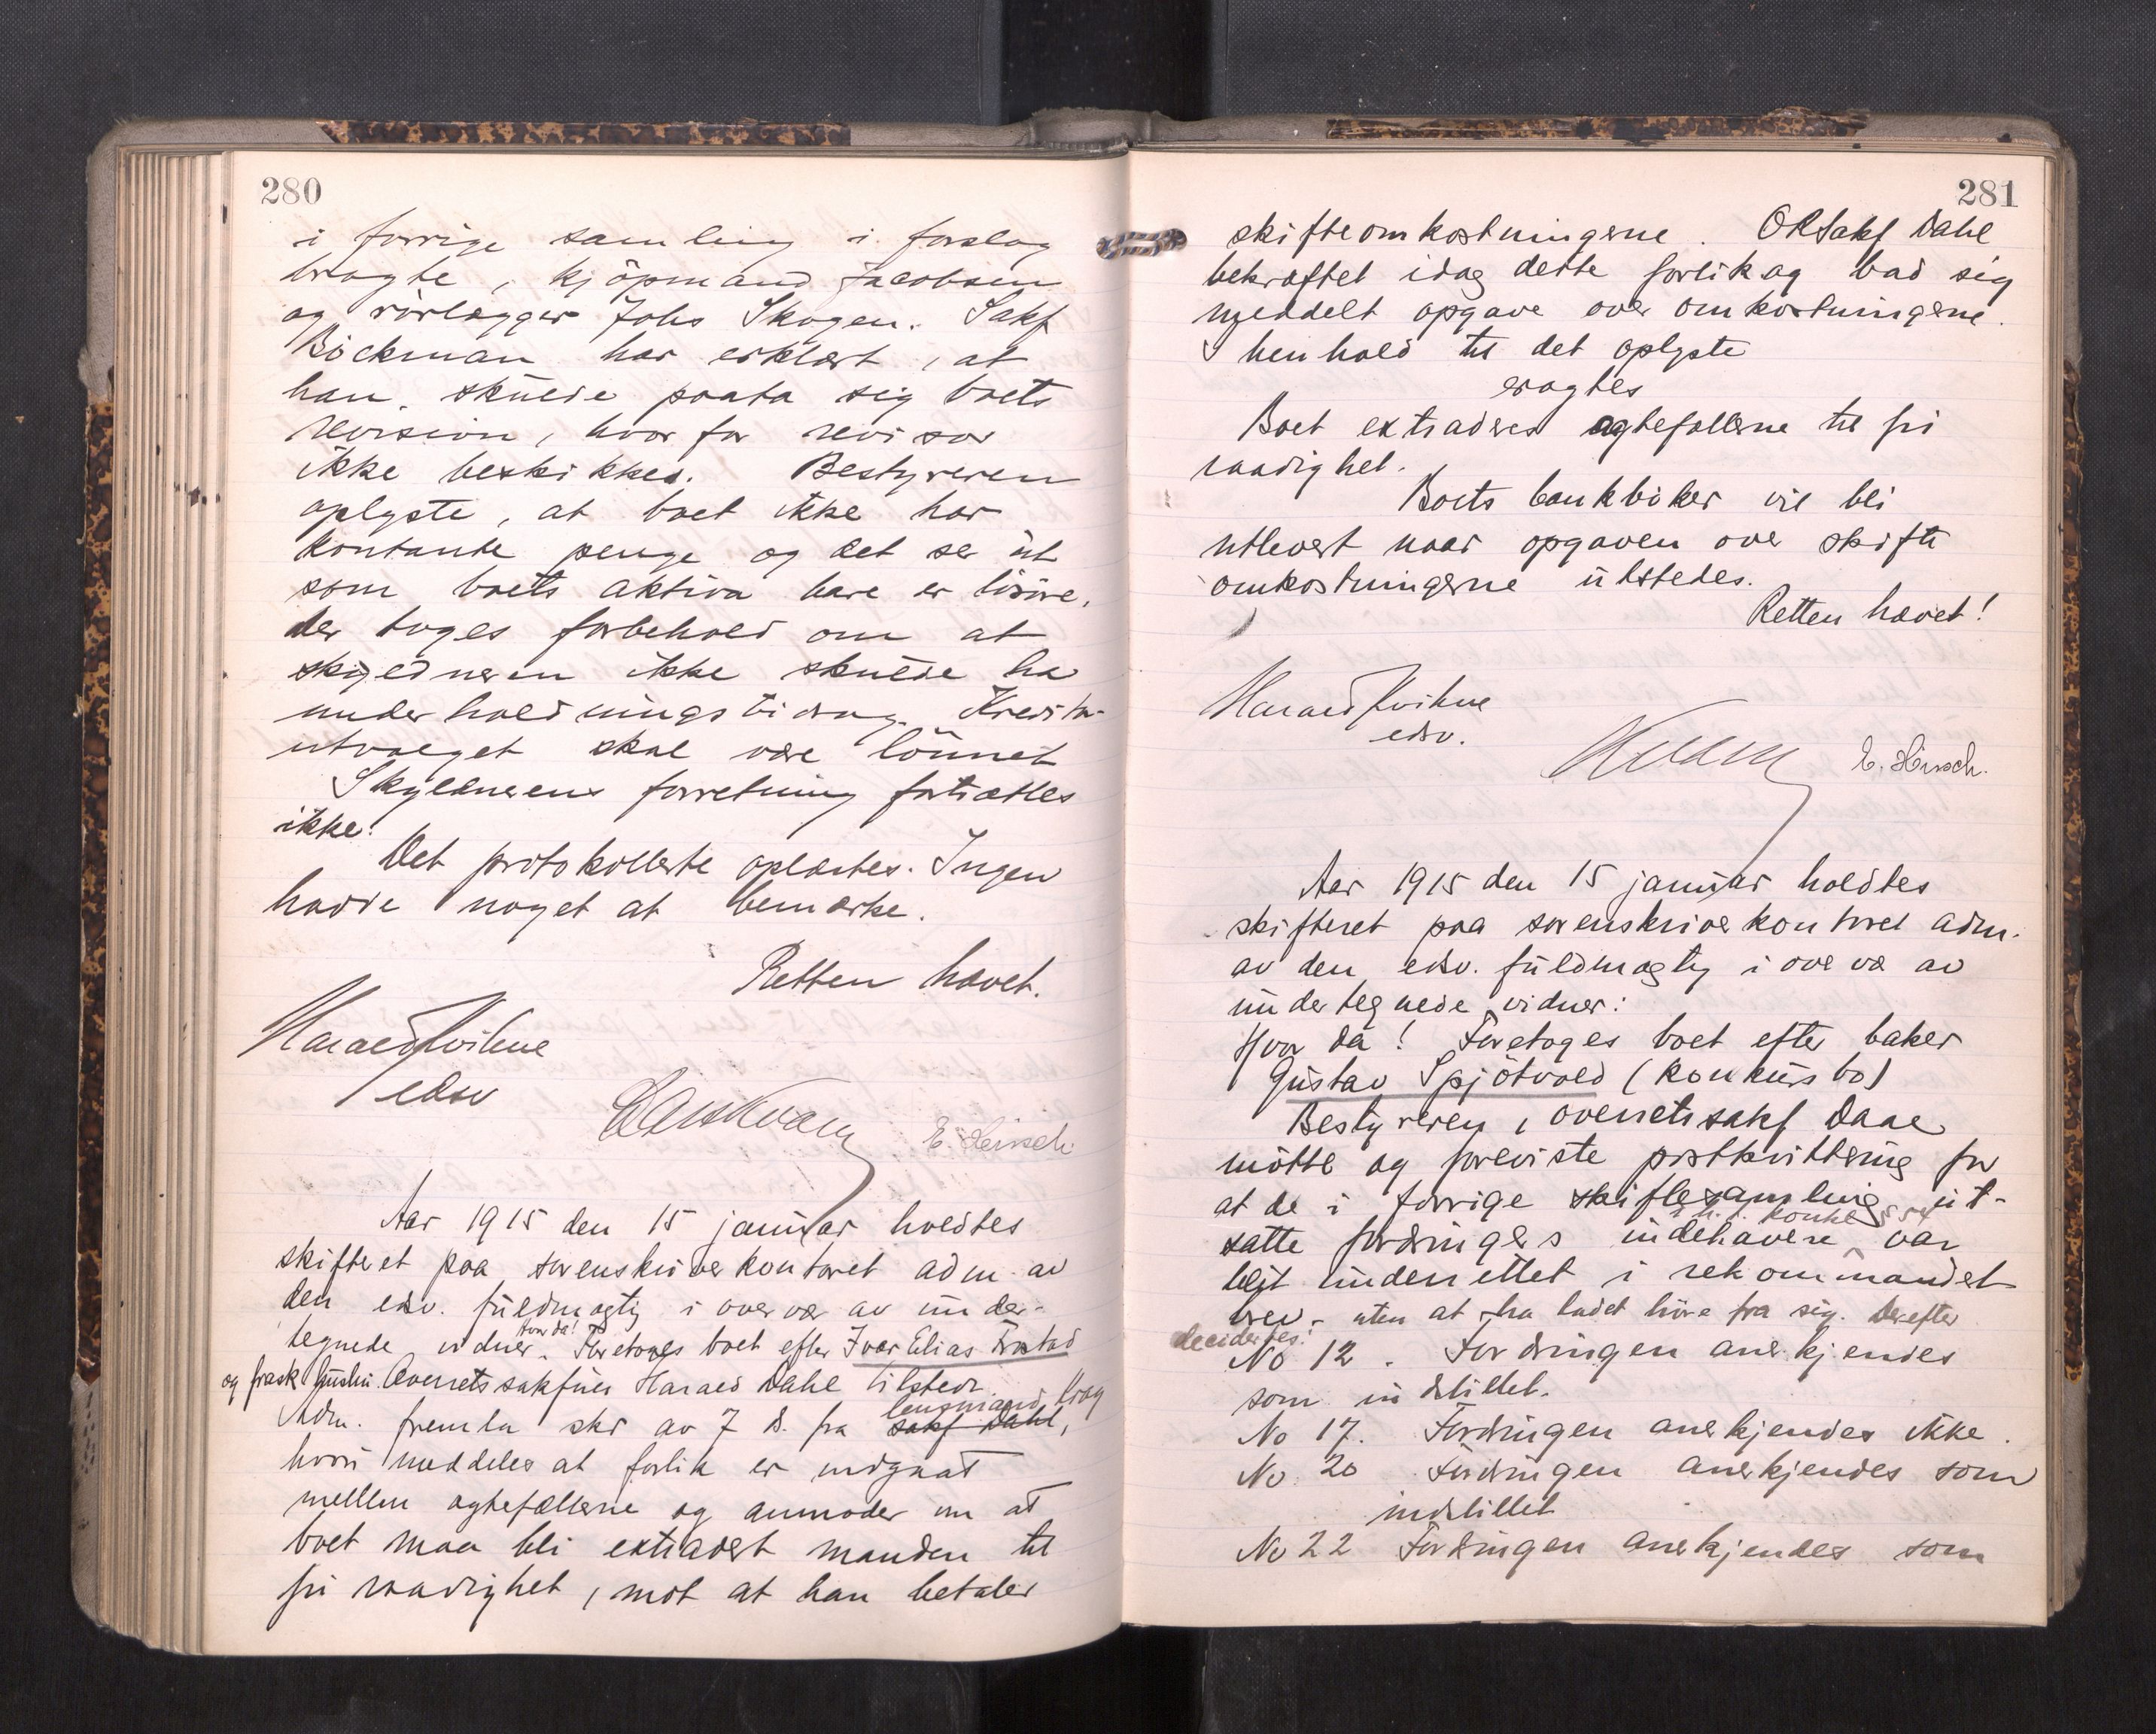 280
i forrige samling i forslag
bragte, kjöpmand Jacobsen
og rörlægger Johs Skogen. Sakf
Böckman har erklært, at
han skulde paata sig boets
revision, hvorfor revisor
ikke beskikkes. Bestyreren
oplyste, at boet ikke har
kontante penge og det ser ut
som boets aktiva bare er lösöre.
Der toges forbehold om at
skyldneren ikke skulde ha
underholdningsbidrag. Kreditor-
utvalget skal være lönnet
Skyldnerens forretning fortsættes
ikke.
Det protokollerte oplæstes. Ingen
hadde noget at bemærke.
Retten hævet.
Harald Kvihne
edsv
E. Hirsch
Aar 1915 den 15 januar holdtes
skifteret paa sorenskriverkontoret adm. av
den edsv. fuldmægtig i overvær av under-
tegnede vidner. Hvor da! Foretoges boet efter Ivar Elias
og frask. hustru. Overretssakfører Harald Dahl tilstede.
Adm. fremla skr av 7 ds. fra sakf Dahl, lensmand Krag
hvori meddeles at forlik er indgaat
mellem egtefællerne og anmoder om at
boet maa bli extradert manden til
fri raadighet, mot at han betaler
281
skifteomkostningerne. ORsakf Dahl
bekræftet idag dette forlik og bad sig
meddelt opgave over omkostningerne.
I henhold til det oplyste
eragtes
Boet extraderes egtefællerne til fri
raadighet.
Boets bankböker vil bli
utlevert naar opgaven over skifte
omkostningerne utstedes.
Retten hævet!
Harald Kvihne
edsv.
E. Hirsch.
Aar 1915 den 15 januar holdtes
skifteret paa sorenskriverkontoret adm.
av den edsv. fuldmægtig i overvær av
undertegnede vidner:
Hvor da! Foretoges boet efter baker
Gustav Spjötvold (konkursbo)
Bestyreren, overretssakf Daae
mötte og foreviste postkvittering for
at de i forrige skiftesamling ut-
satte fordringers indehavere var
blit underrettet i rekommandert
brev - uten at ha ladet höre fra sig. Derefter
decidertes:
No 12. Fordringen anerkjendes
som indstillet.
No 17. Fordringen anerkjendes ikke.
No 20 Fordringen anerkjendes som
indstillet
No 22 Fordringen anerkjendes som